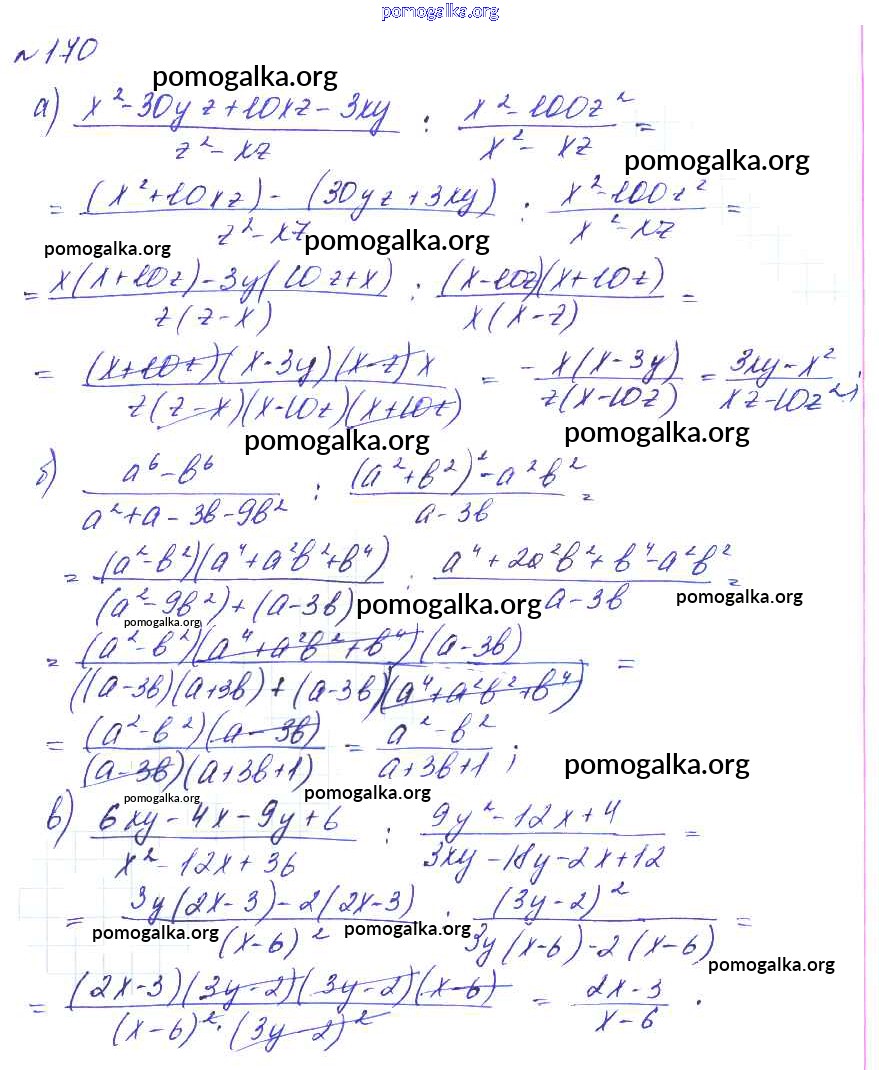 pomogalka.org
№170
pomogalka.org
а) (x² - 30yz + 10xz - 3xy)/(z² - xz) : (x² - 100z²)/(x² - xz) =
pomogalka.org
= ((x² + 10xz) - (30yz + 3xy))/(z² - xz) : (x² - 100z²)/(x² - xz) =
pomogalka.org pomogalka.org
= (x(x + 10z) - 3y(10z + x))/(z(z - x)) : ((x - 10z)(x + 10z))/(x(x - z)) =
= ((x + 10z)(x - 3y)(x - z)x)/(z(z - x)(x - 10z)(x + 10z)) = - (x(x - 3y))/(z(x - 10z)) = (3xy - x²)/(xz - 10z²);
pomogalka.org pomogalka.org
б) (a⁶ - b⁶)/(a² + a - 3b - 9b²) : ((a² + b²)² - a²b²)/(a - 3b) =
= ((a² - b²)(a⁴ + a²b² + b⁴))/((a² - 9b²) + (a - 3b)) : (a⁴ + 2a²b² + b⁴ - a²b²)/(a - 3b) =
pomogalka.org pomogalka.org pomogalka.org
= ((a² - b²)(a⁴ + a²b² + b⁴)(a - 3b))/(((a - 3b)(a + 3b) + (a - 3b)(a⁴ + a²b² + b⁴)) =
= ((a² - b²)(a - 3b))/((a - 3b)(a + 3b + 1)) = (a² - b²)/(a + 3b + 1);
pomogalka.org
pomogalka.org pomogalka.org
в) (6xy - 4x - 9y + 6)/(x² - 12x + 36) : (9y² - 12x + 4)/(3xy - 18y - 2x + 12) =
= (3y(2x - 3) - 2(2x - 3))/((x - 6)²) : ((3y - 2)²)/(3y(x - 6) - 2(x - 6)) =
pomogalka.org pomogalka.org pomogalka.org
= ((2x - 3)(3y - 2)(3y - 2)(x - 6))/((x - 6)² · (3y - 2)²) = (2x - 3)/(x - 6).